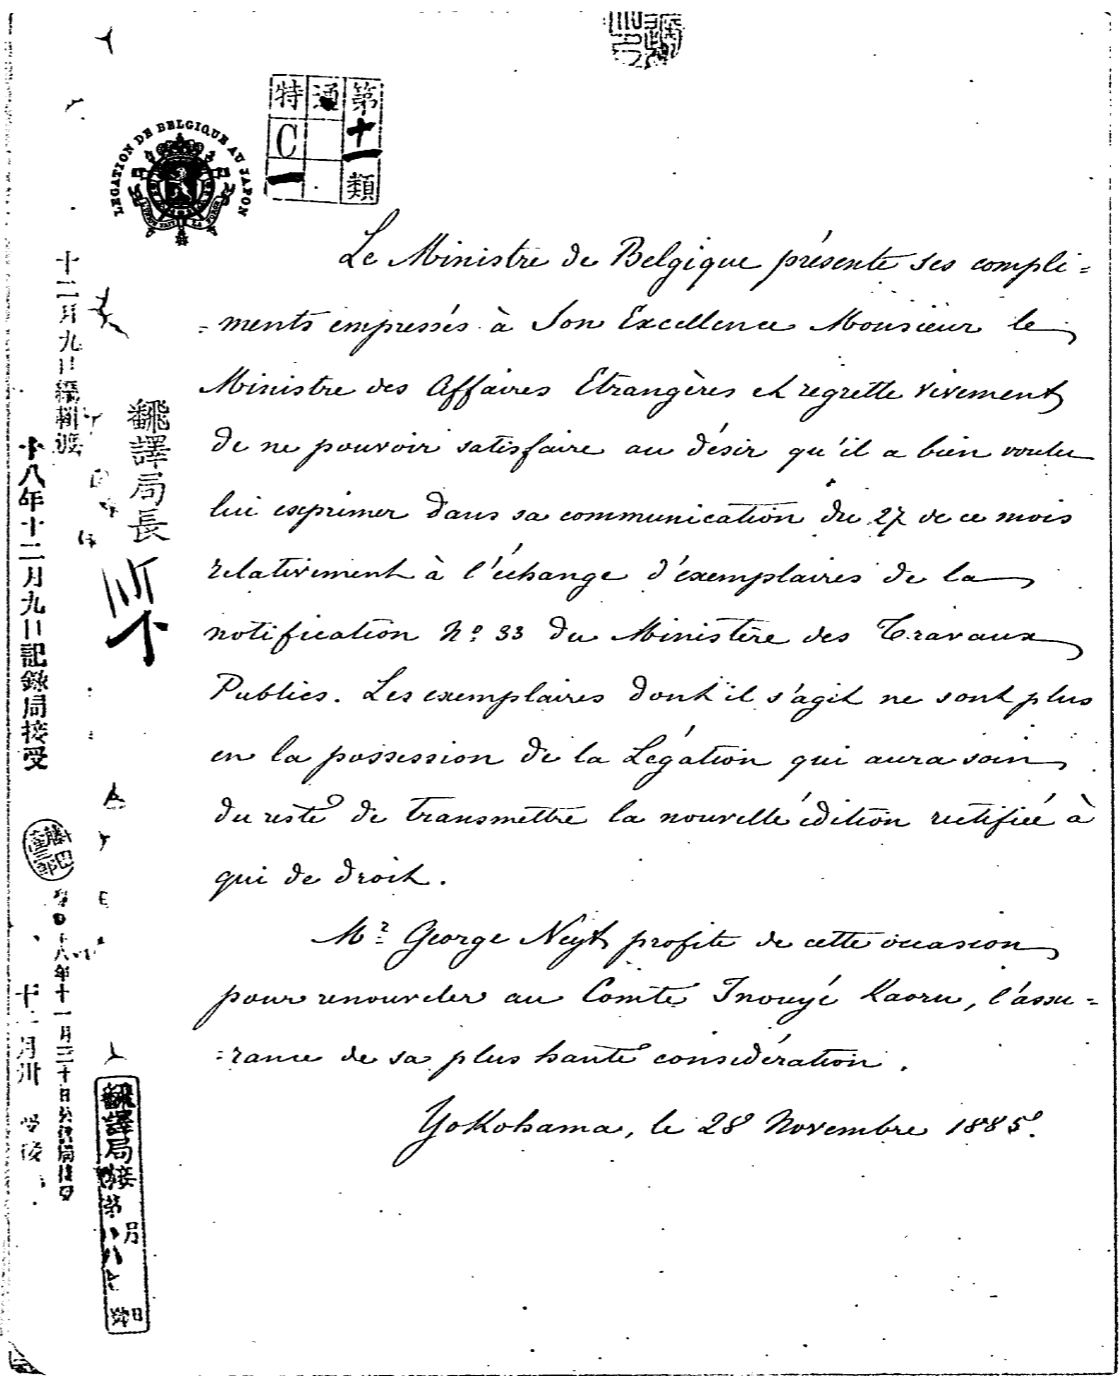 LÉGATION DE BELGIQUE AU JAPON
L'UNION FAIT LA FORCE
第十一類
通
特C一
Le Ministre de Belgique présente ses compli=
=ments empressés à Son Excellence Monsieur le
Ministre des Affaires Etrangères et regrette vivement
de ne pouvoir satisfaire au désir qu'il a bien voulu
lui exprimer dans sa communication du 27 de ce mois
relativement à l'échange d'exemplaires de la
notification No 33 du Ministère des Travaux
Publics. Les exemplaires dont il s'agit ne sont plus
en la possession de la Légation qui aura soin
du reste de transmettre la nouvelle édition rectifiée à
qui de droit.
Mr George Neyt profite de cette occasion
pour renouveler au Comte Inouyé Kaoru, l'assu=
=rance de sa plus haute considération.
Yokohama, le 28 Novembre 1885.
翻譯局長
十二月九日編輯渡
十八年十二月九日記録局接受
十八年十一月三十日
十一月卅
翻譯局接第八八七號
月
日